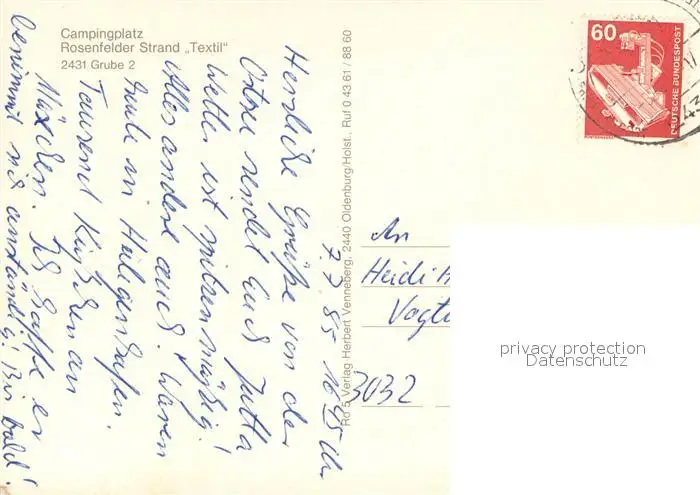 Campingplatz
Rosenfelder Strand „Textil“
2431 Grube 2
7.7.85 16.45 Uhr
Herzliche Grüße von der
Ostsee sendet Euch Jutta
Wetter ist spitzenmäßig!
Alles andere auch. Waren
heute in Heiligenhafen.
Tausend Küßchen an
Mäxchen. Ich hoffe er
benimmt sich anständig! Bis bald!
Ro 5 Verlag Herbert Venneberg, 2440 Oldenburg/Holst., Ruf 0 43 61 / 88 60
60
DEUTSCHE BUNDESPOST
An
Heidi
3032
privacy protection
Datenschutz